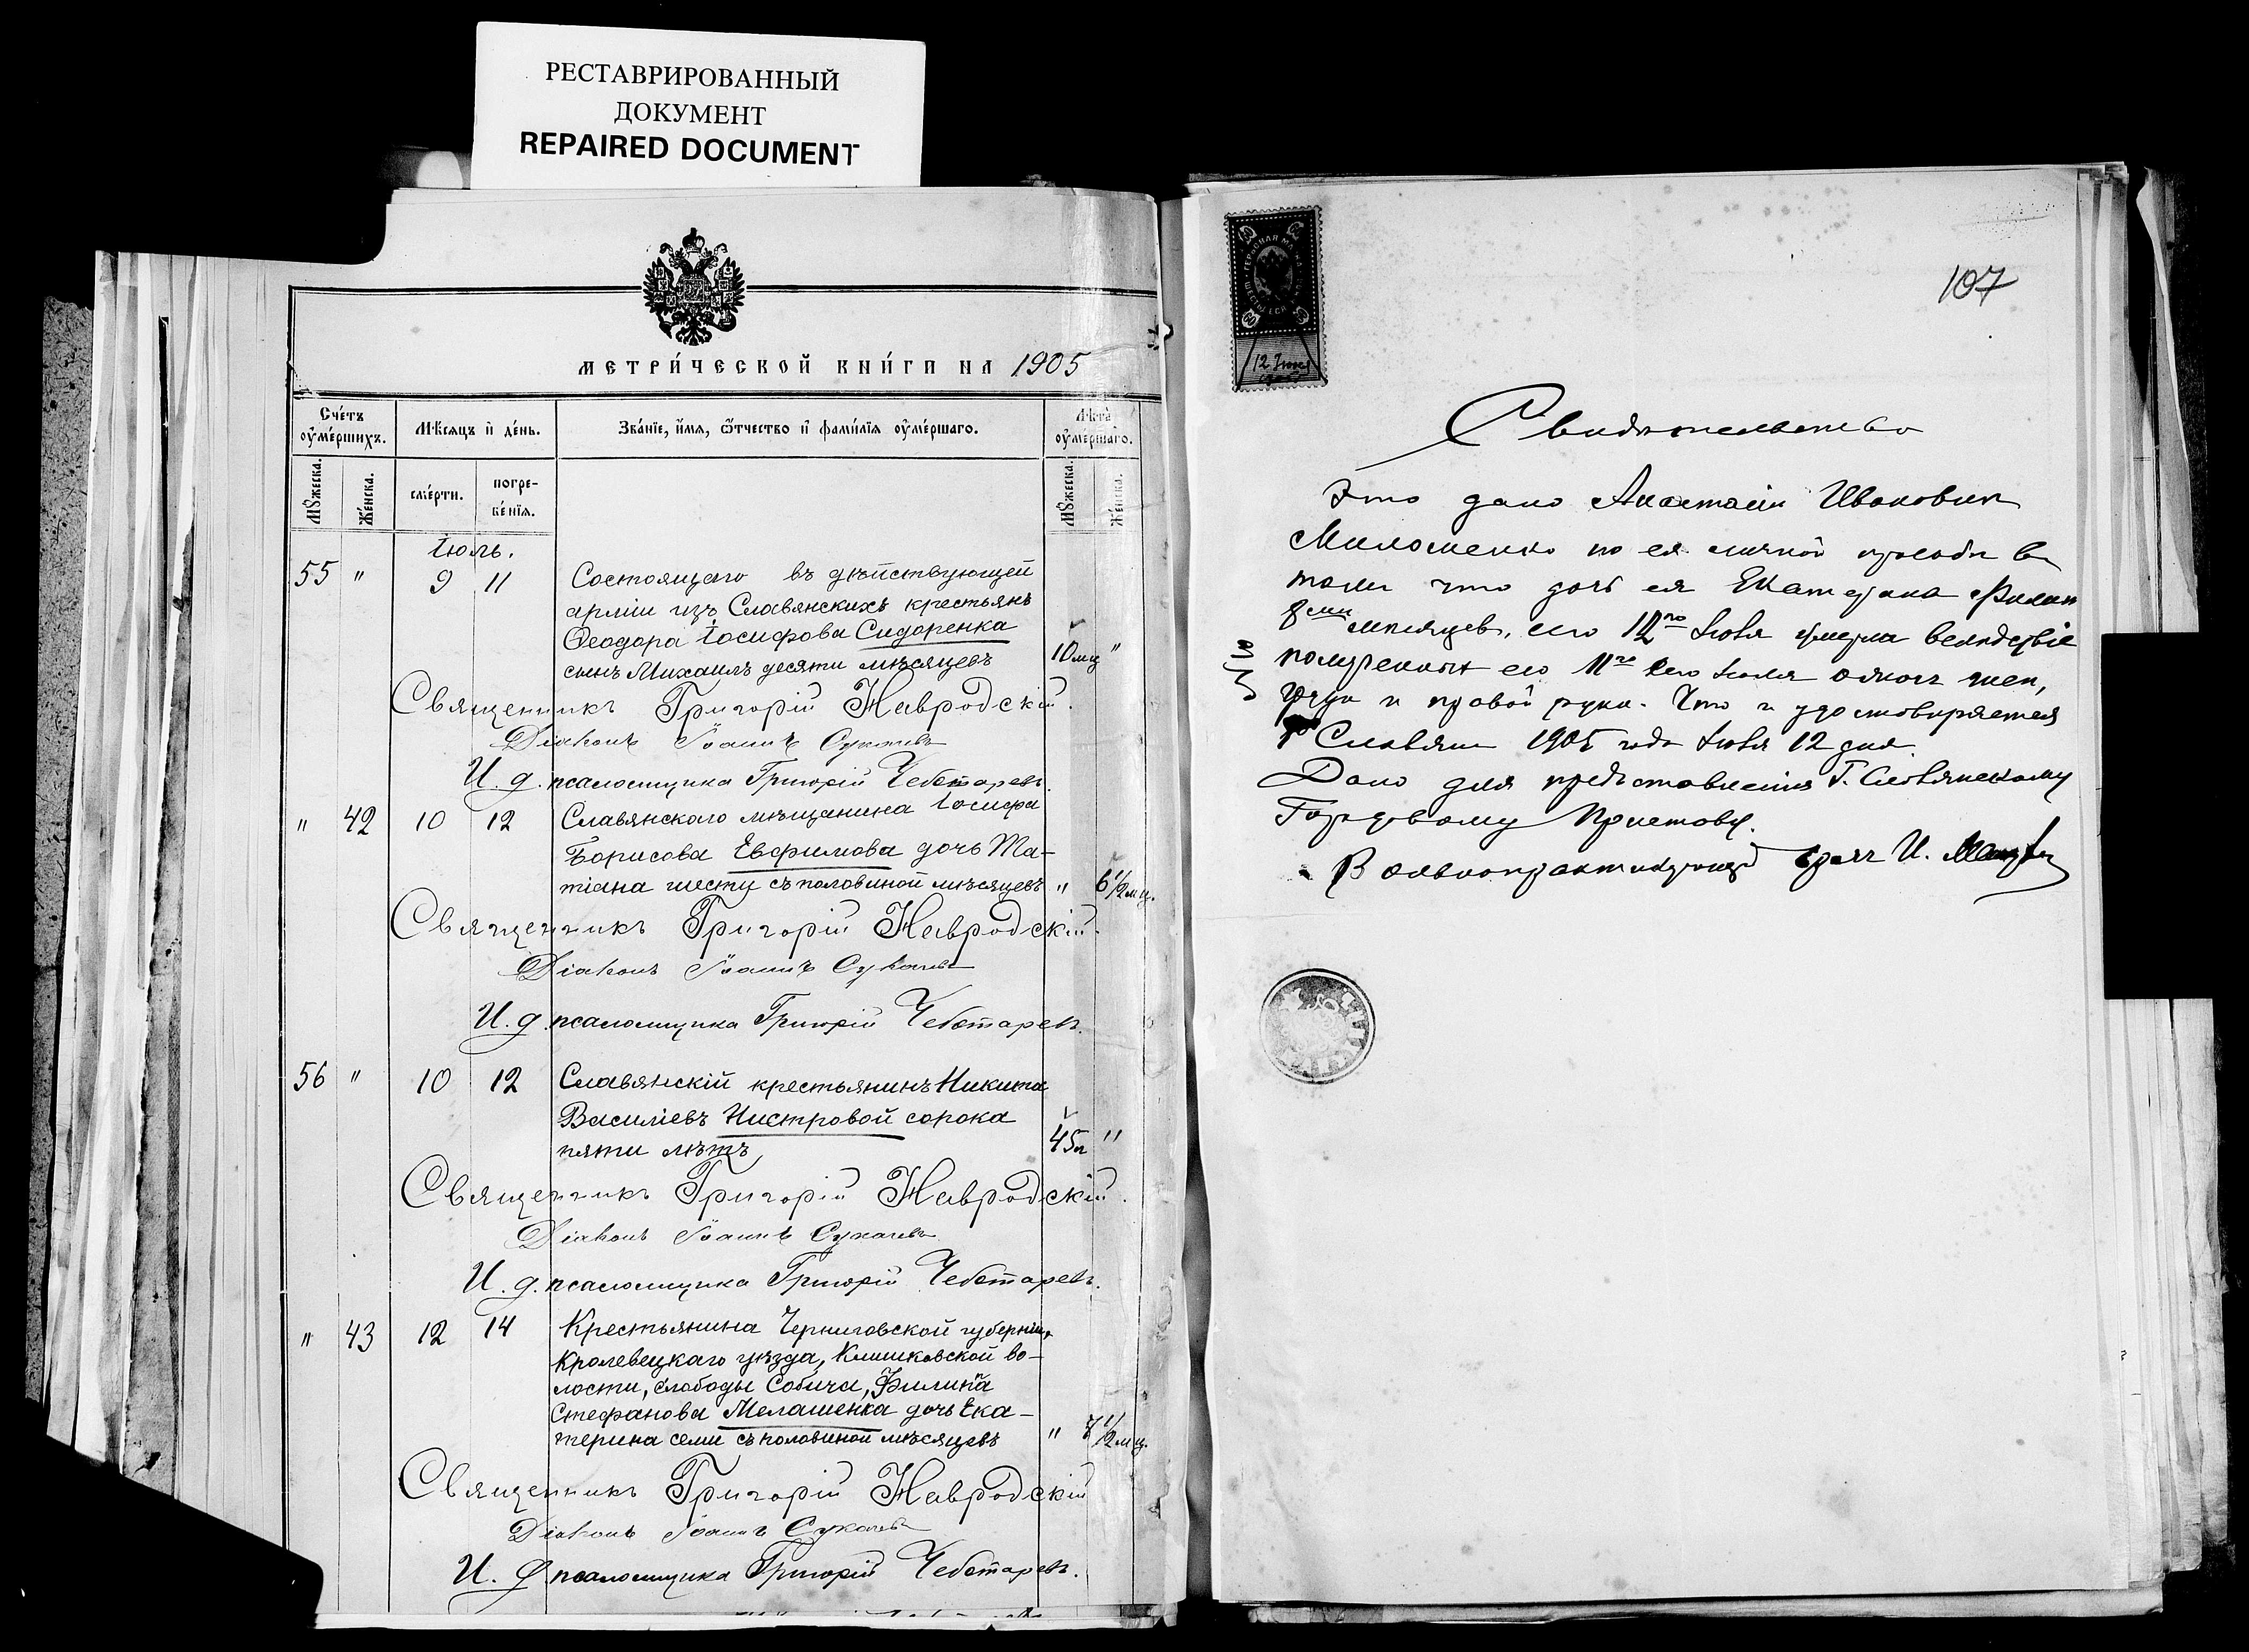 РЕСТАВРИРОВАННЫЙ
ДОКУМЕНТ
REPAIRED DOCUMENT
МЕТРИ́ЧЕСКОЙ КНИ́ГИ НА 1905
Сче́тъ ᲂу҆ме́ршихъ.
Мѣ́сяцъ и҆ де́нь.
Зва́нїе, и҆́мя, ѻ҆́тчество и҆ фами́лїя ᲂу҆ме́ршаго.
Лѣ́та ᲂу҆ме́ршаго.
Мꙋ́жеска.
Же́нска.
сме́рти.
погре-
бе́нїѧ.
Мꙋ́жеска.
Же́нска.
Іюль.
55 " 9 11 Состоящаго въ дѣйствующей
арміи изъ Славянскихъ крестьянъ
Ѳеодора Іосифова Сидоренка
сынъ Михаилъ десяти мѣсяцевъ 10 мц "
Священникъ Григорій Навродскій.
Діаконъ Іоаннъ Сукачевъ
И. д. псаломщика Григорій Чеботаревъ.
" 42 10 12 Славянскаго мѣщанина Іосифа
Борисова Евфимова дочь Та-
тіана шести съ половиной мѣсяцевъ " 6 1/2 мц.
Священникъ Григорій Навродскій.
Діаконъ Іоаннъ Сукачевъ
И. д. псаломщика Григорій Чеботаревъ.
56 " 10 12 Славянскій крестьянинъ Никита
Василіевъ Нистровой сорока
пяти лѣтъ 45 л "
Священникъ Григорій Навродскій.
Діаконъ Іоаннъ Сукачевъ
И. д. псаломщика Григорій Чеботаревъ.
" 43 12 14 Крестьянина Черниговской губерніи,
Кролевецкаго уѣзда, Клишковской во-
лости, слободы Собичи, Филипа
Стефанова Мелашенка дочь Ека-
терина семи съ половиной мѣсяцевъ " 7 1/2 мц.
Священникъ Григорій Навродскій
Діаконъ Іоаннъ Сукачевъ
И. д. псаломщика Григорій Чеботаревъ.
ГЕРБОВАЯ МАРКА
60
12 Іюля
107
Свидѣтельство
Это дано Анастасіи Ивановнѣ
Милошенко по ея личной просьбѣ въ
томъ что дочь ея Екатерина Филип
8ми мѣсяцев, сего 12го Іюля умерла вслѣдствіе
полученныхъ ею 11го сего Іюля ожогъ шеи,
груди и правой руки. Что и удостовѣряется
Славян 1905 года Іюля 12 дня.
Дано для представленія Г. Славянскому
Городовому Приставу.
Вольнопрактикующій врачъ И.